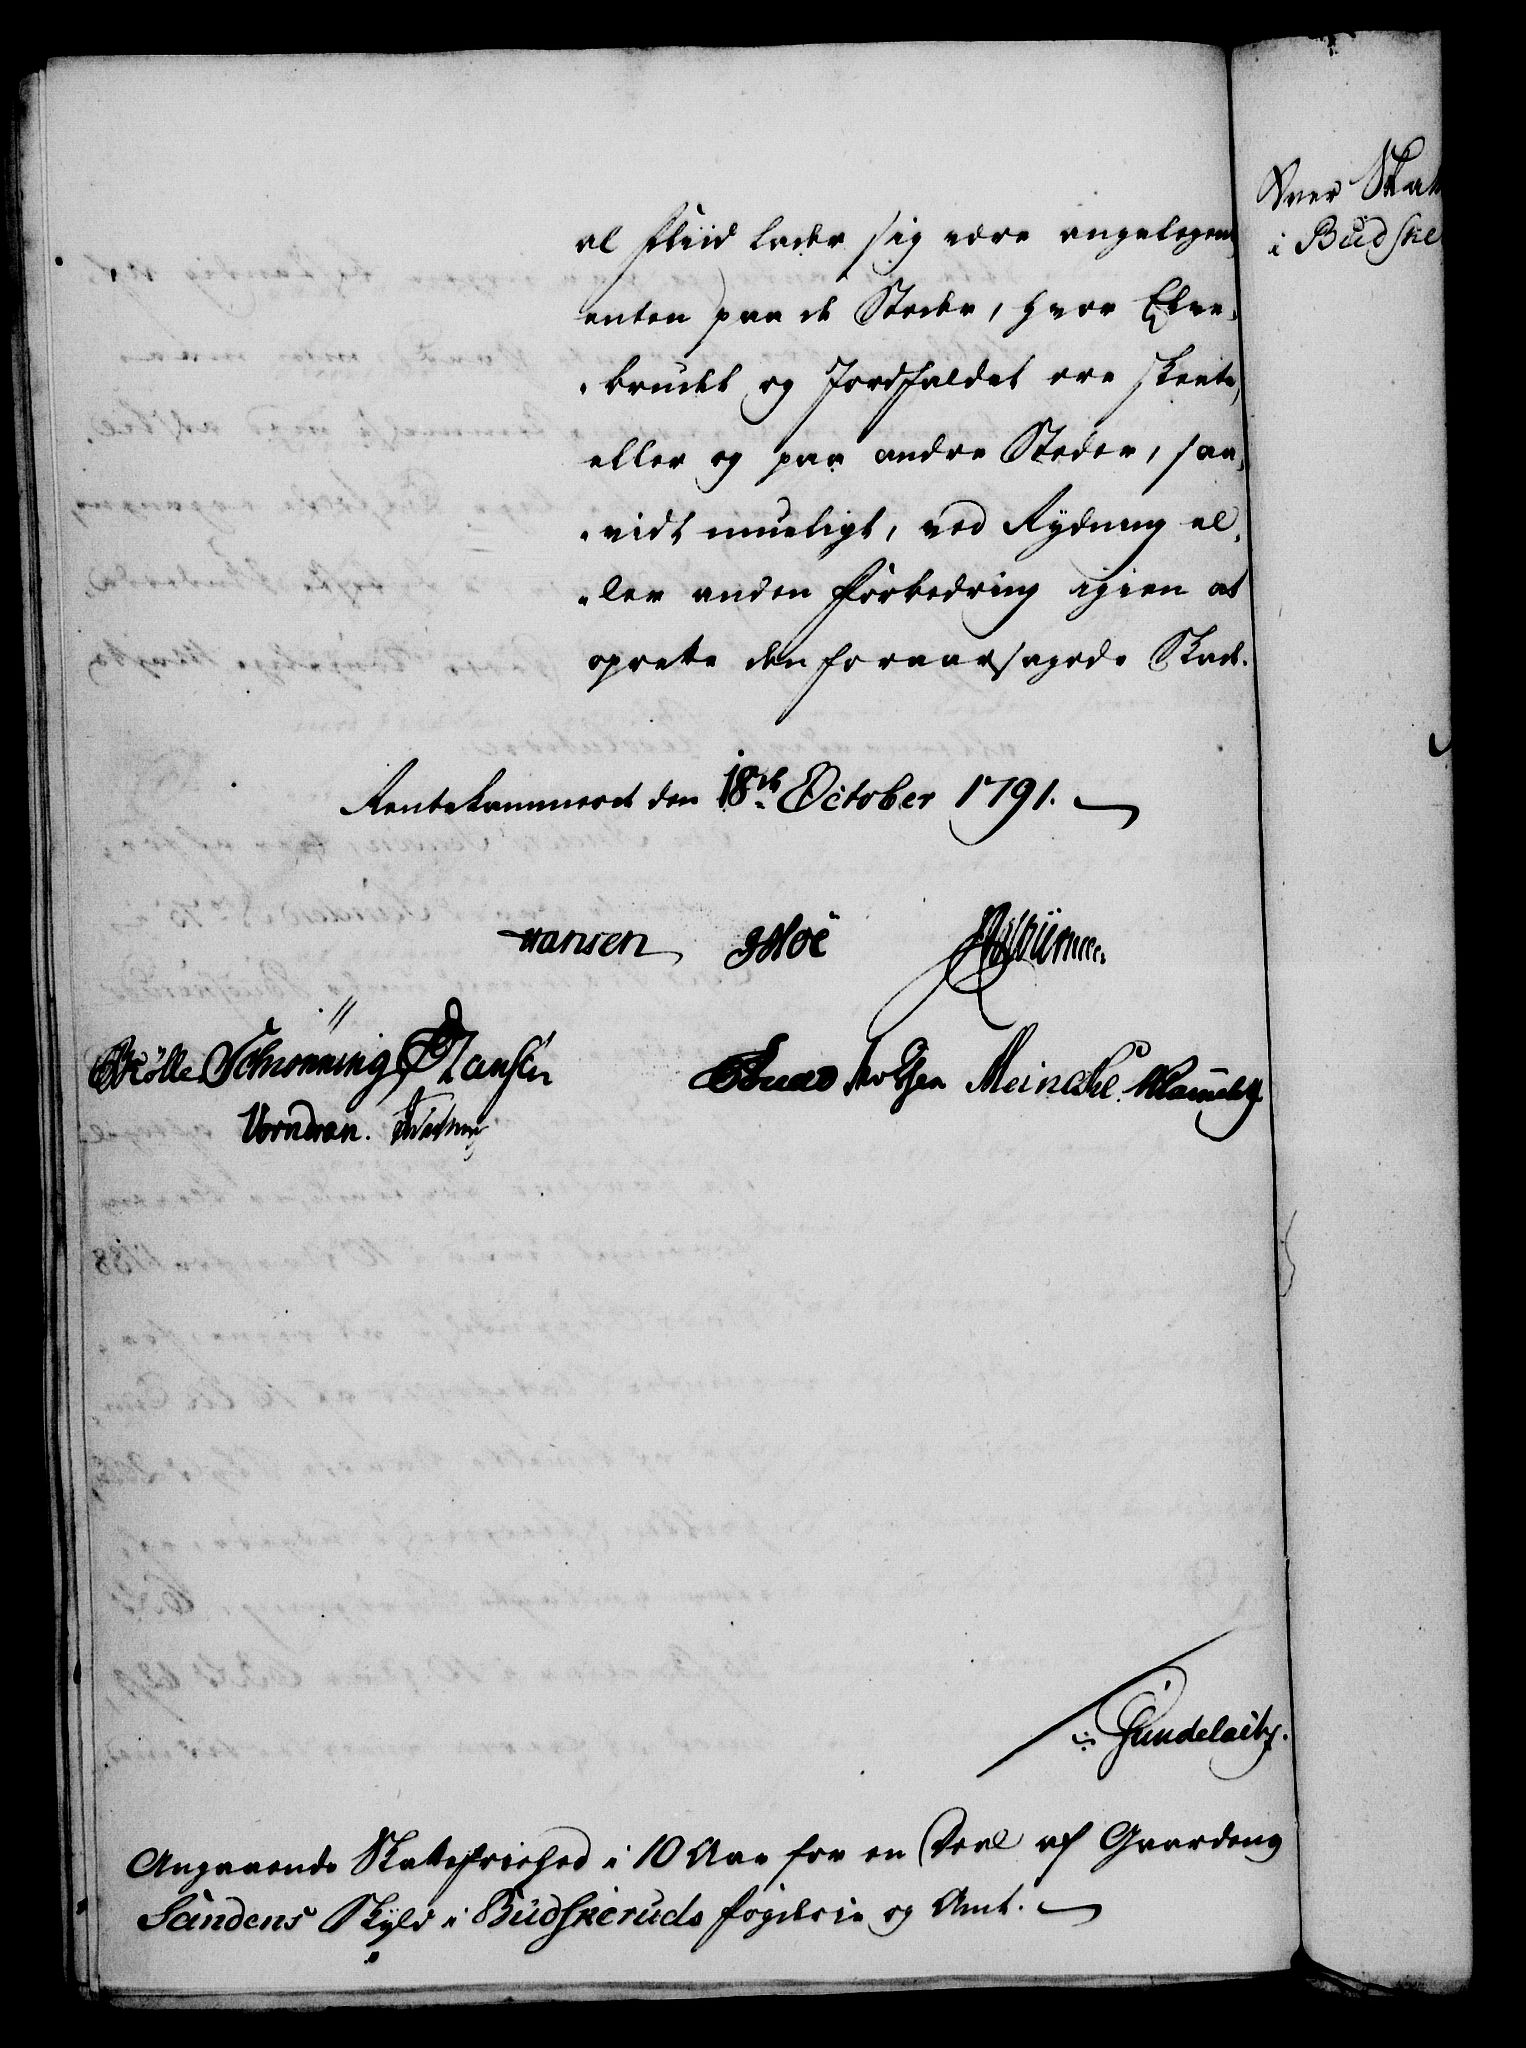 al Fliid lader sig være angelegen,
enten paa de Steder, hvor Elve-
-brudet og Jordfaldet ere skeete,
eller og paa andre Steder, saa-
-vidt mueligt, ved Rydning el-
-ler anden Forbedring igien at
oprette den foraarsagede Skade.
Rentekammeret den 18de October 1791.
Hansen
Schrønning Hansen
Meincke
Vorndran.
Angaaende Skattefriehed i 10 Aar for en Deel af Gaardens
Sandens Skyld i Budskeruds Fogderie og Amt.
Over Skat
i Budske